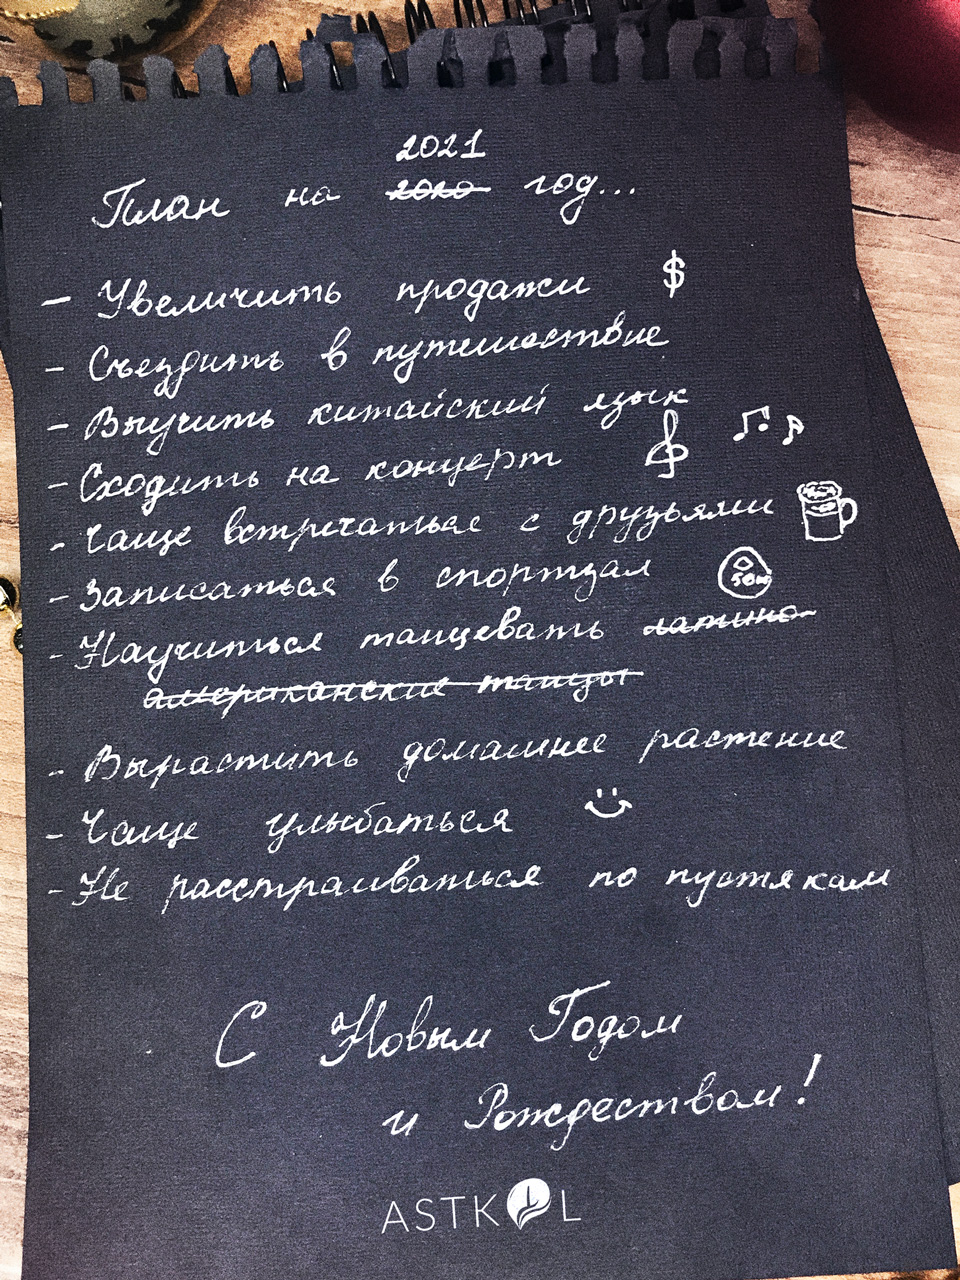 2021
План на 2020 год...
- Увеличить продажи $
- Съездить в путешествие
- Выучить китайский язык
- Сходить на концерт
- Чаще встречаться с друзьями
- Записаться в спортзал
- Научиться танцевать латино-
американские танцы
- Вырастить домашнее растение
- Чаще улыбаться
- Не расстраиваться по пустякам
С Новым Годом
и Рождеством!
ASTKOL